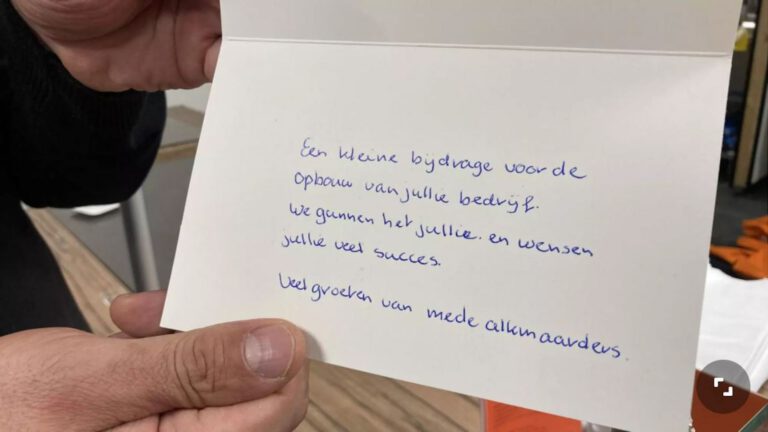 Een kleine bijdrage voor de
opbouw van jullie bedrijf.
We gunnen het jullie. en wensen
jullie veel succes.
Veel groeten van mede alkmaarders.